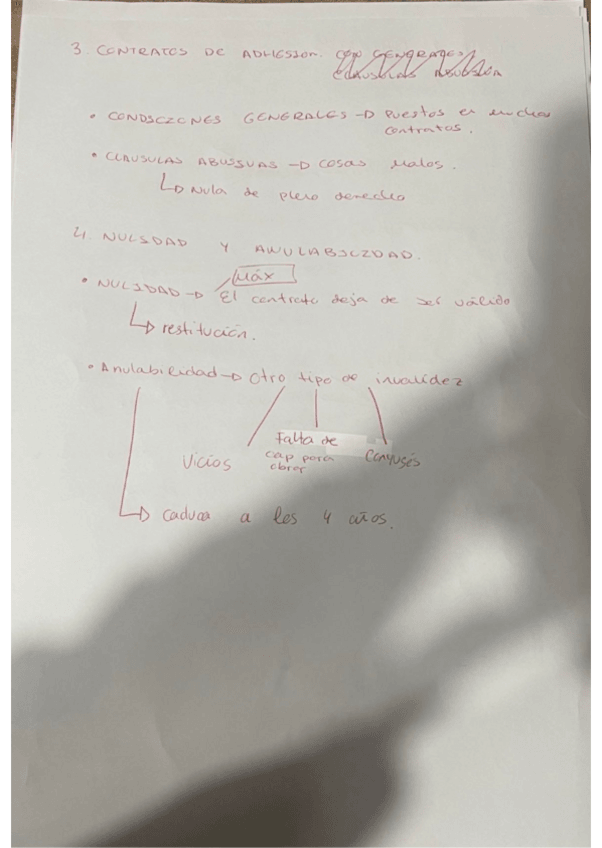 3. CONTRATOS DE ADHESION. CON GENERALES
CLAUSULAS ABUSIVA
• CONDICIONES GENERALES → puestos en muchos
contratos.
• CLAUSULAS ABUSIVAS → cosas malos.
↳ Nula de pleno derecho
4. NULIDAD Y ANULABILIDAD.
Máx
• NULIDAD → El contrato deja de ser válido
↳ restitución.
• Anulabilidad → Otro tipo de invalidez
Vicios
Falta de
cap para
obrar
Conyugés
↳ Caduca a los 4 años.